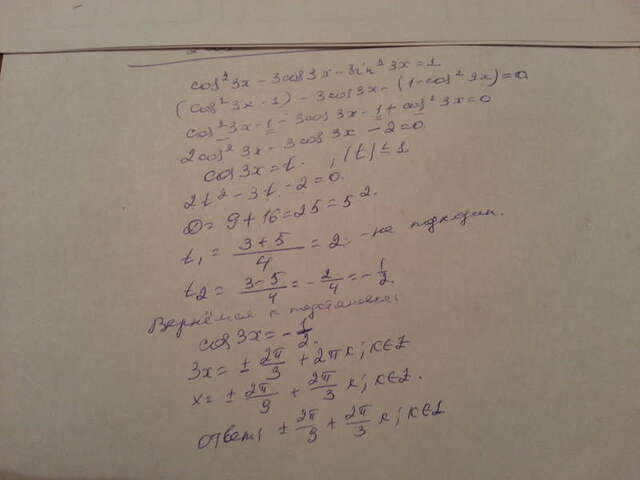 cos²3x - 3cos3x - sin²3x = 1
(cos²3x - 1) - 3cos3x - (1 - cos²3x) = 0
cos²3x - 1 - 3cos3x - 1 + cos²3x = 0
2cos²3x - 3cos3x - 2 = 0
cos3x = t. ; |t| ≤ 1
2t² - 3t - 2 = 0.
D = 9 + 16 = 25 = 5².
t₁ = (3+5)/4 = 2. - не подходит.
t₂ = (3-5)/4 = -2/4 = -1/2.
Вернёмся к подстановке:
cos3x = -1/2.
3x = ± 2π/3 + 2πк; к∈Z
x = ± 2π/9 + 2π/3 к; к∈Z.
ответ: ± 2π/9 + 2π/3 к; к∈Z